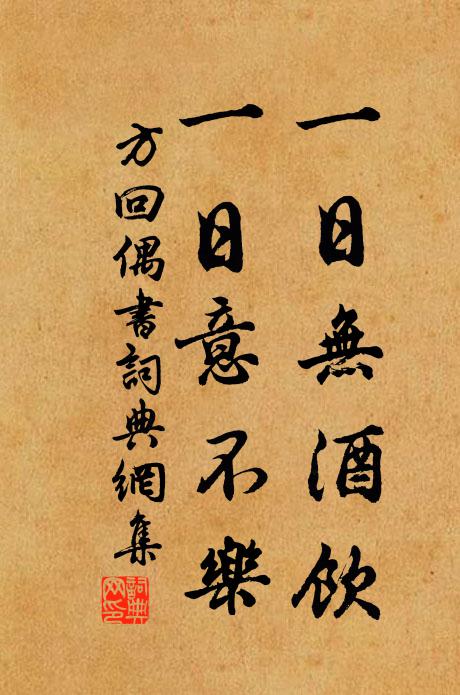 一日無酒飲
一日意不樂
方回偶書詞典網集
詞典网印